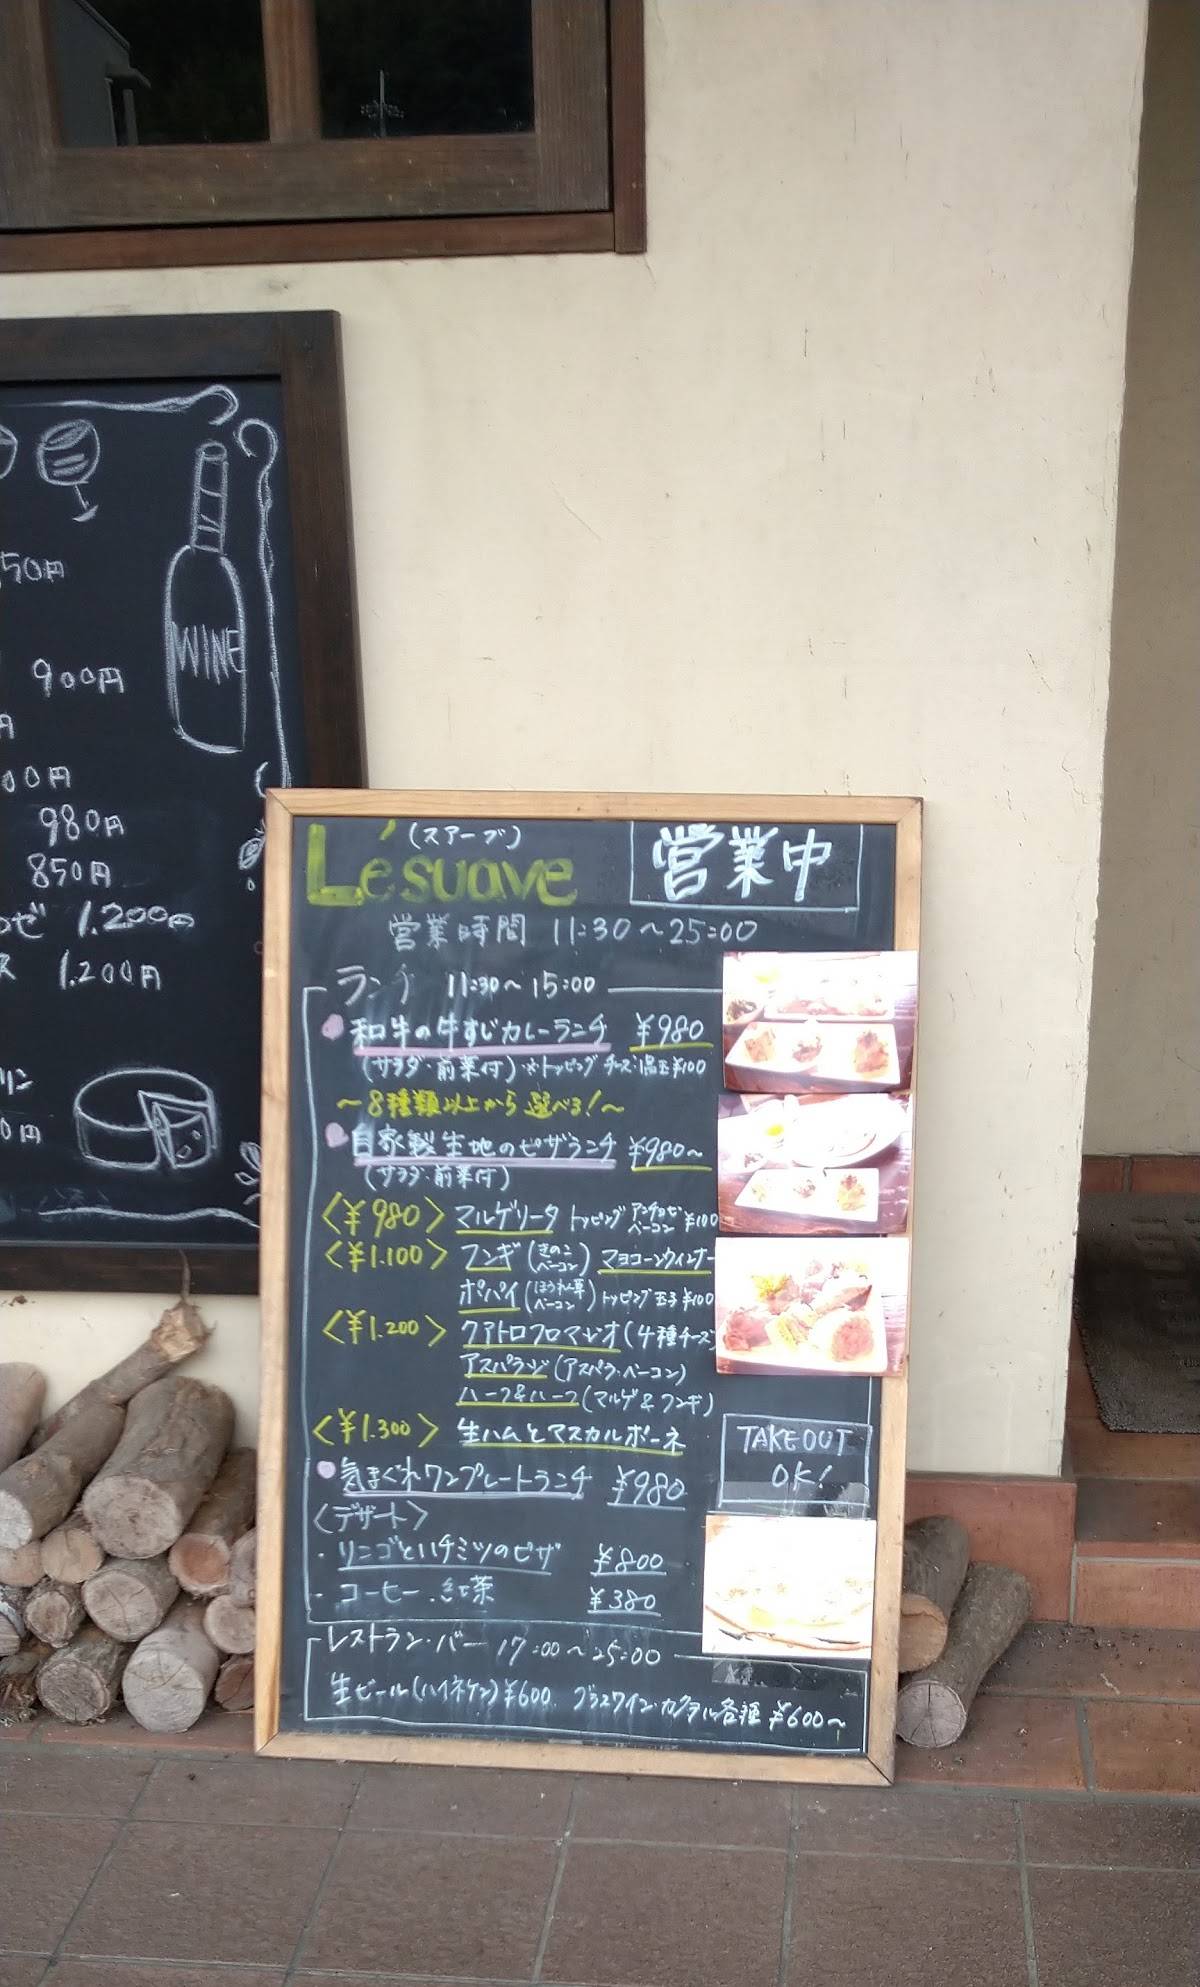 50円
900円
円
00円
980円
850円
ゼ 1.200円
1.200円
リン
0円
WINE
(スアーブ)
Lésuave
営業中
営業時間 11:30～25:00
ランチ 11:30～15:00
和牛の牛すじカレーランチ ¥980
(サラダ・前菜付) ※トッピング チーズ・温玉¥100
～8種類以上から選べる!～
自家製生地のピザランチ ¥980～
(サラダ・前菜付)
<¥980> マルゲリータ トッピング アンチョビ ベーコン ¥100
<¥1.100> フンギ (きのこ ベーコン) マヨコーンウィンナー
ポパイ (ほうれん草 ベーコン) トッピング 玉子 ¥100
<¥1.200> クアトロフロマジオ (4種チーズ)
アスパラッジ (アスパラ・ベーコン)
ハーフ&ハーフ (マルゲ&フンギ)
<¥1.300> 生ハムとマスカルポーネ
気まぐれワンプレートランチ ¥980
<デザート>
・リンゴとハチミツのピザ ¥800
・コーヒー・紅茶 ¥380
TAKE OUT
OK!
レストラン・バー 17:00～25:00
生ビール(ハイネケン) ¥600 グラスワイン・カクテル各種 ¥600～